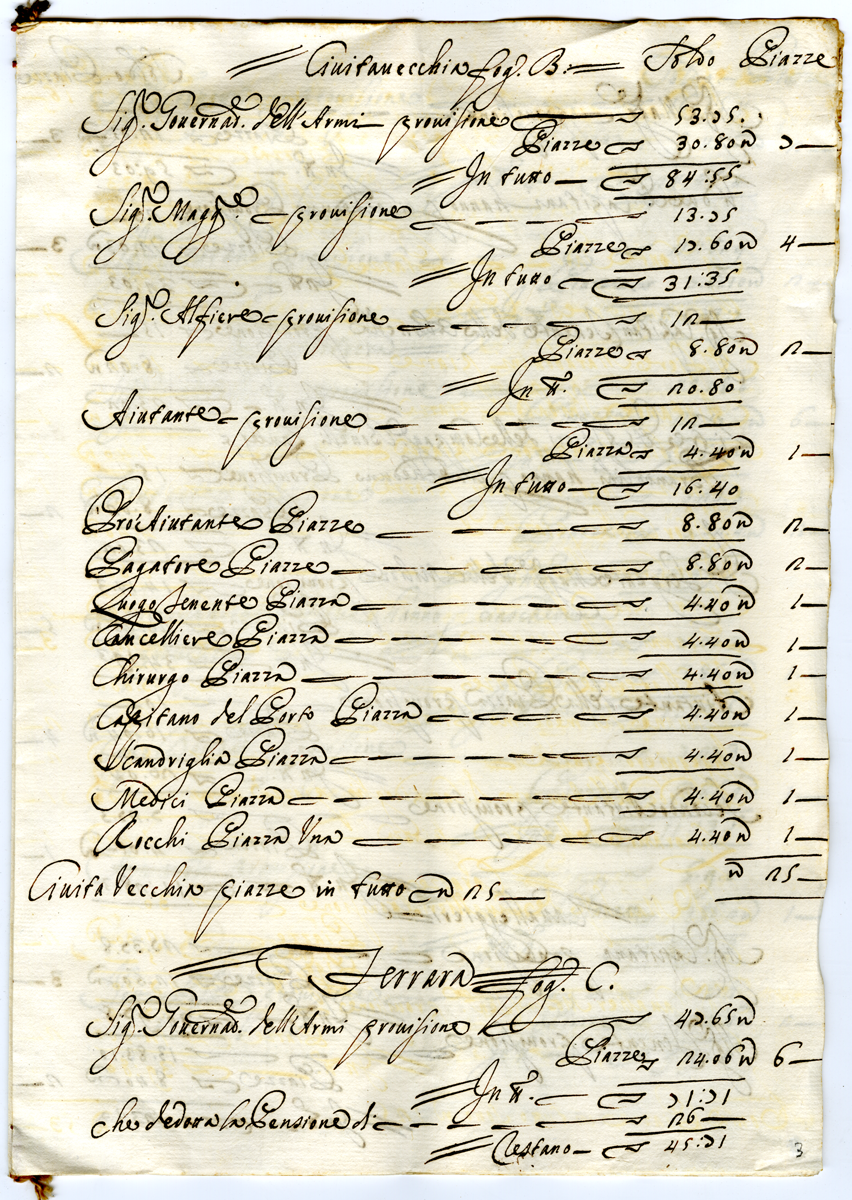 Ciuitauecchia fog. B: Soldo Piazze
Sig. Gouernad. dell'Armi prouisione 53.75.
Piazze 30.80 n 7
In tutto 84:55
Sig. Magg.e prouisione 13.75
Piazze 17.60 n 4
In tutto 31:35
Sig. Alfiere prouisione 12
Piazze 8.80 n 2
In tt.o 20.80
Aiutante prouisione 12
Piazza 4.40 n 1
In tutto 16.40
Pro'Aiutante Piazze 8.80 n 2
Pagatore Piazze 8.80 n 2
Luogotenente Piazza 4.40 n 1
Cancelliere Piazza 4.40 n 1
Chirurgo Piazza 4.40 n 1
Capitano del Porto Piazza 4.40 n 1
Scandriglia Piazza 4.40 n 1
Medici Piazza 4.40 n 1
Rocchi Piazza Vna 4.40 n 1
n 25
Ciuita Vecchia piazze in tutto n 25
Ferrara fog. C.
Sig. Gouernad. dell'Armi prouisione 47.65 n
Piazze 24.06 n 6
In tt.o 71:71
che dedotta la Pensione di 26
Restano 45:71
3